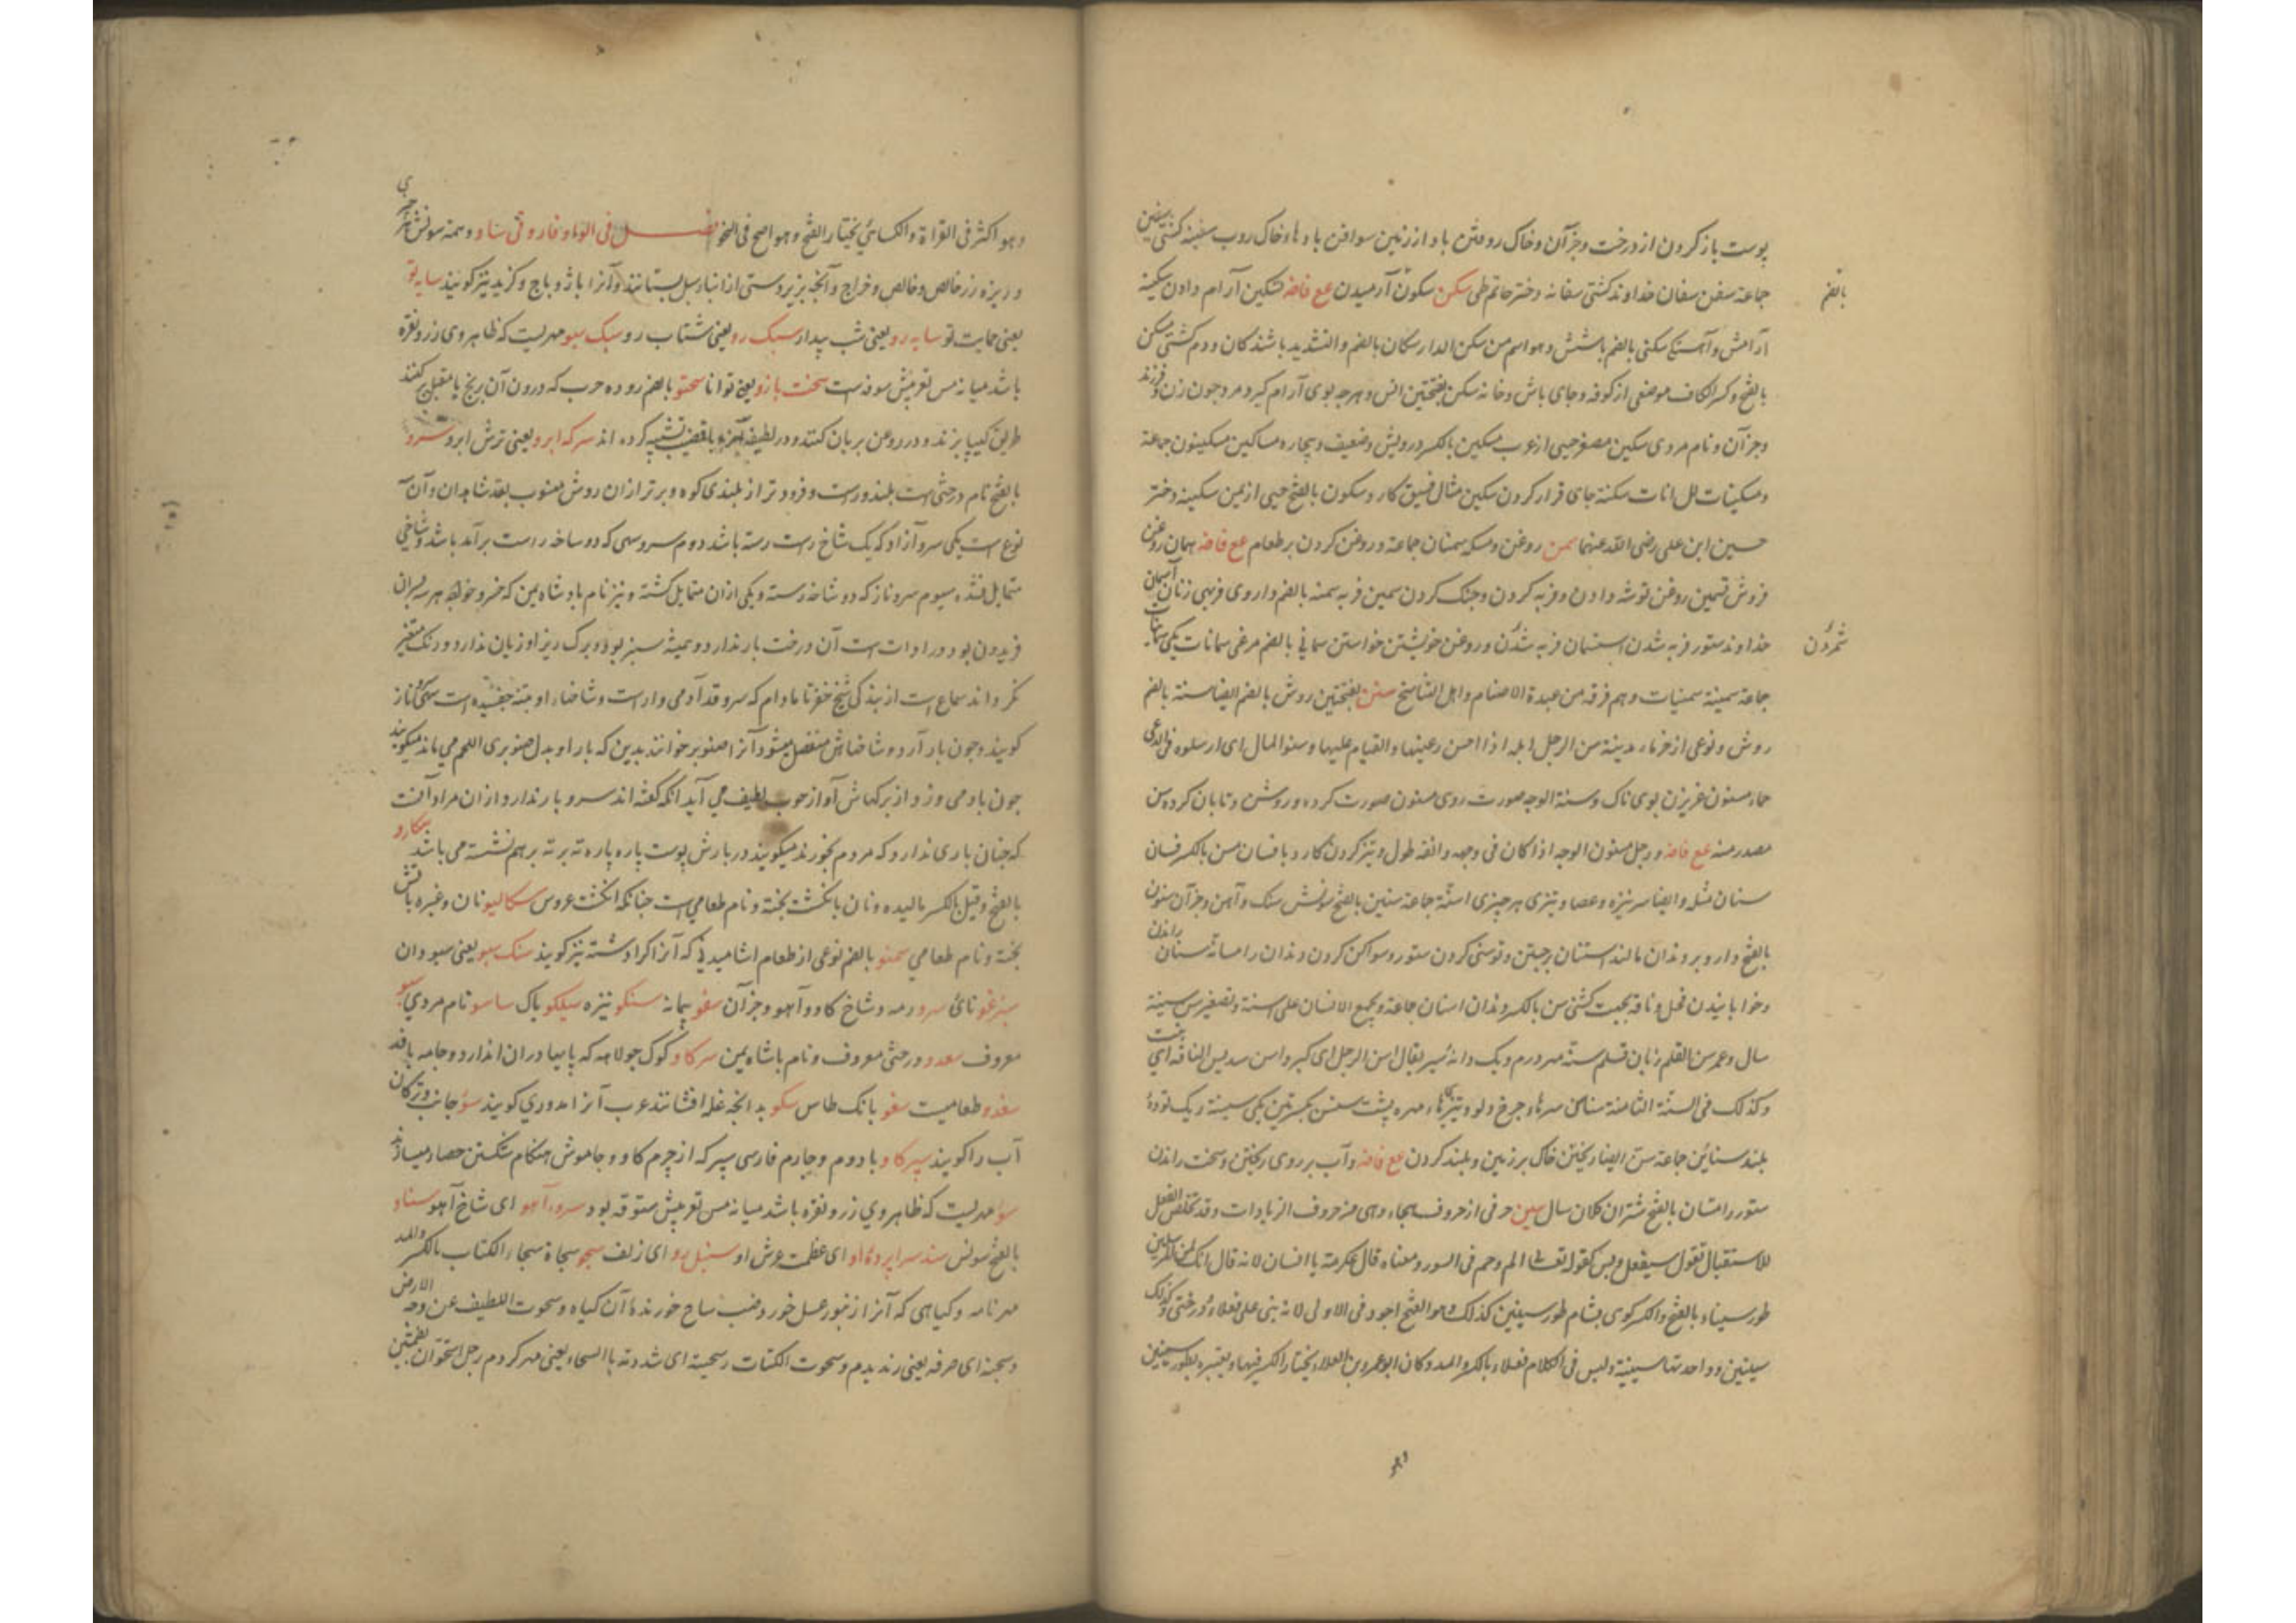 پوست باز کردن از درخت و جز آن و خاک رو رفتن باد از زمین سوافن بادها و خاک روب سفینه کشتی سفین
جماعة سفن سفان خداوند کشتی سفانه دختر حاتم طی سکن سکون آرمیدن ع فاضه تسکین آرام دادن سکینه
بالضم
آرامش و آهستگی سکنی بالضم باشش و هو اسم من سکن الدار سکان بالضم و التشدید باشندکان و دم کشتی مسکن
بالفتح و کسر الکاف موضعی از کوفه و جای باش و خانه سکن بفتحتین انس و هرچه بوی آرام کیرد مرد چون زن و فرزند
و جز آن و نام مردی سکین مصغر حیی از عرب مسکین بالکسر درویش و ضعیف و بیچاره مساکین مسکینون جماعة
و مسکینات للاناث سکنة جای قرار کردن سکین مثال فسیق کارد سکون بالفتح حیی از یمن سکینه دختر
حسین ابن علی رضی الله عنهما سمن روغن و مسکه سمنان جماعة و روغن کردن بر طعام ع فاضه سمان روغن
فروش تسمین روغن توشه دادن و فربه کردن و خنک کردن سمین فربه سمنه بالضم داروی فربهی زنان اسمان
خداوند ستور فربه شدن استسمان فربه شمردن و روغن خویشتن خواستن سمانی بالضم مرغی سمانات یکی سمانات
شمردن
جماعة سمینة سمنیات و هم فرقه من عبدة الاصنام و اهل التناسخ سنن بفتحتین روش بالضم ایضا سنة بالضم
روش و نوعی از خرماء مدینة سن الرجل ابله اذا احسن رعیتها و القیام علیها و سنوا المال ای ارسلوه فی الرعی
حماء مسنون غریزن بوی ناک و سنة الوجه صورت روی مسنون صورت کرده و روشن و تابان کرده سن
مصدر منه ع فاضه و رجل مسنون الوجه اذا کان فی وجهه و انفه طول و تیز کردن کارد با فسان مسن بالکسر فسان
سنان مثله و ایضا سر نیزه و عصا و تیزی هر چیزی اسنة جماعة سنین بالفتح سونش سنک و آهن و جز آن سنون
بالفتح دارو بر دندان مالند استنان برجستن و توسنی کردن ستور و سواک کردن دندان را مسانة سنان راندن
و خوابانیدن فحل و ناقه بجهت کشنی سن بالکسر دندان اسنان جماعة و یجمع الاسنان علی اسنة و تصغیر سن سنینة
سال و عمر سن القلم زبان قلم سنة مهر درم و یک دانه سیر یقال اسن الرجل ای کبر و اسن سدیس الناقة ای نبت
و کذلک فی السنة الثامنة سناسن سرهاء چرخ دلو و تیزیهاء مهره پشت سنسن بکسرتین یکی سنینة ریک توده
بلند سنائن جماعة سن ایضا ریختن خاک بر زمین و بلند کردن ع فاضه و آب بر روی ریختن و سخت راندن
ستور را مسان بالفتح شتران کلان سال سین حرفی از حروف هجاء و هی من حروف الزیادات و قد تخلص الفعل
للاستقبال تقول سیفعل و یس کقوله تعالی الم و حم فی السور و معناه قال عکرمة یا انسان لانه قال انک لمن المرسلین
طور سیناء بالفتح و الکسر کوی بشام طور سینین کذلک و هو الفتح اجود فی الاولی لانه بنی علی فعلاء و درختی و کذلک
سینین و واحدتها سینینة و لیس فی الکلام فعلاء بالکسر و المد و کان ابو عمرو بن العلاء یختار الکسر فیها و یعتبره بطور سینین
وهو
و هو اکثر فی القراة و الکسائی یختار الفتح و هو اصح فی النحو فصل فی الواو فاروقی ساو و همه سونش هر چیزی
و ریزه زر خالص و خالص و خراج و آنچه بزبردستی از انبار سبیل بستانند و آنرا باژ و باج و کزید نیز کویند سایه تو
یعنی حمایت تو سایه رو یعنی شب بیدار سبک رو یعنی شتاب رو سبک سبو مهریست که ظاهر وی زر و نقره
باشد میانه مس تعریبش سوفه است سخت بازو یعنی توانا سختو بالضم روده چرب که درون آن برنج یا متقبل پر کنند
طریق کیپا پزند و در روغن بریان کنند و در لطیفه آنرا با قضیب تشبیه کرده اند سرکه ابرو یعنی ترش ابرو سرو
بالفتح نام درختی است بلند و راست و فرود تر از بلندی کوه و برتر از ان روش منسوب بقد شاهدان و آن سه
نوع است یکی سرو آزاد که یک شاخ راست رسته باشد دوم سرو سهی که دو شاخه راست برآمد باشد و شاخی
متمایل نشده سیوم سرو ناز که دو شاخه رسته و یکی از ان متمایل کشته و نیز نام پادشاه یمن که خسرو خواهر هر سه پسران
فریدون بود و در ادات است آن درخت بار ندارد و همیشه سبز بود و برک ریز او زیان ندارد و رنک متغیر
نکرداند سماع است از بندکی شیخ خضر تا مادام که سرو قد آدمی دارد است و شاخهاء او هیئة چفسیده است سهی و ناز
کویند و چون بار آرد و شاخهاش منفصل میشود آنرا صنوبر خوانند بدین که بار او بدل صنوبری اللحم می ماند میکویند
چون باد می وزد از برکهاش آواز خوب لطیف می آید آنکه کفته اند سرو بار ندارد از ان مراد آنست
که چنان باری ندارد که مردم بخورند میکویند در بارش پوست پاره پاره ته بر ته برهم نشسته می باشد سکارو
بالفتح و قیل بالکسر مالیده و نان بانکشت پخته و نام طعامی است چنانکه انکشت عروس سکالیو نان و غیره باتش
پخته و نام طعامی سمنو بالضم نوعی از طعام اشامیدنی که آنرا کراد شسته نیز کویند سنک سبو یعنی سبودان
سرغو نائ سرو رمه و شاخ کاو و آهو و جز آن سغو پیمانه سنکو نیزه سیلکو پاک ساسو نام مردی سبو
معروف سعدو درختی معروف و نام باشاه یمن سرکاو کوک جولاهه که پایها در ان اندازد و جامه بافد
سغدو طعامیست سغو بانک طاس سکو بدانچه غله افشانند عرب آنرا مدوری کویند سو جانب و ترکان
آب را کویند سپر کاو بادوم و چارم فارسی سپر که از چرم کاو و جاموش هنکام شکستن حصار میسازند
سو مهریست که ظاهر وی زر و نقره باشد میانه مس تعریبش ستوقه بود سروء آهو ای شاخ آهو سناو
بالفتح سونس سند سراپرده او ای عظمت عرش او سنبل رو ای زلف سحو سحاة سحاء الکتاب بالکسر والمد
مهر نامه و کیاهی که آنرا زنبور عسل خورد ضب ساح خورنده آن کیاه و سحوت اللطیف عن وجه الارض
و سحیته ای جرفه یعنی رندیدم و سحوت الکتاب و سحیته ای شددته بالسحاء یعنی مهر کردم رجل اسحوان بضمتین